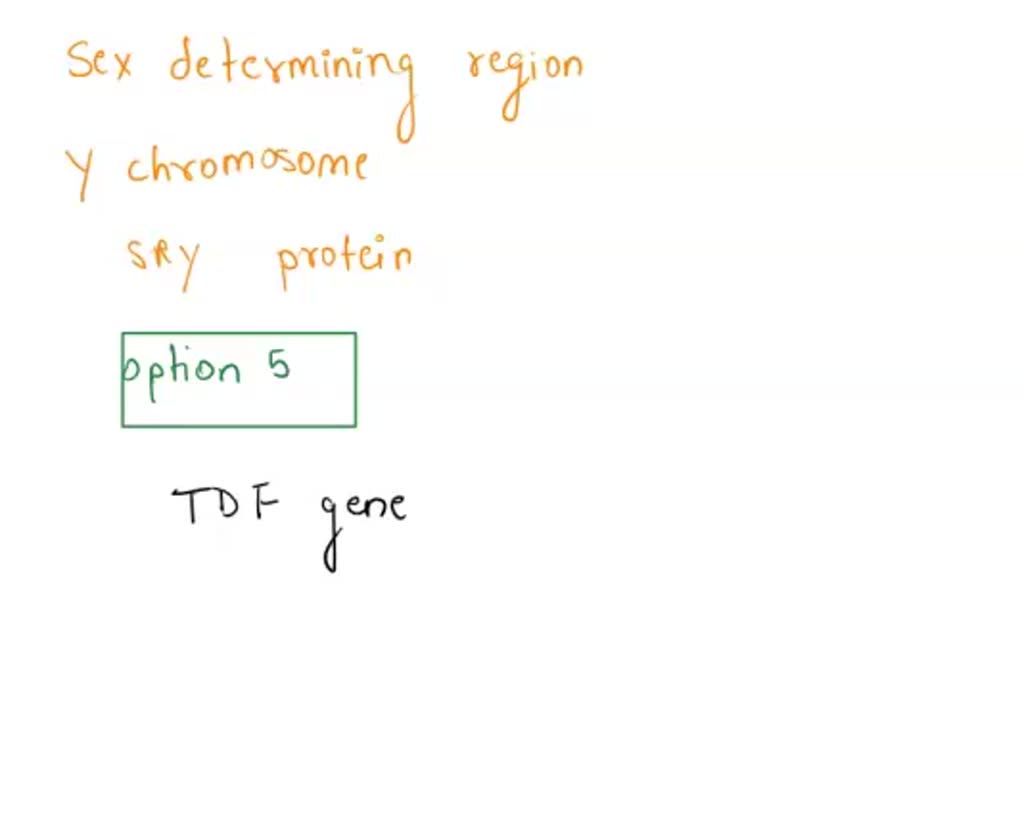 Sex determining region
Y chromosome
SRY protein
option 5
TDF gene